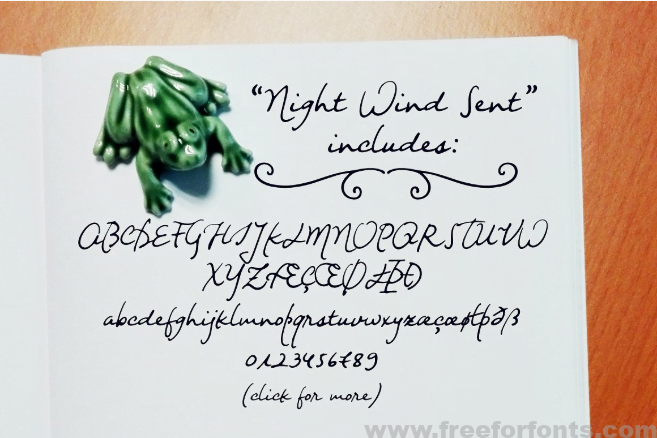 “Night Wind Sent”
includes:
ABCDEFGHIJKLMNOPQRSTUVW
XYZÆÇŒØŁÞÐ
abcdefghijklmnopqrstuvwxyzæçœøłþðß
0123456789
(click for more)
www.freeforfonts.com